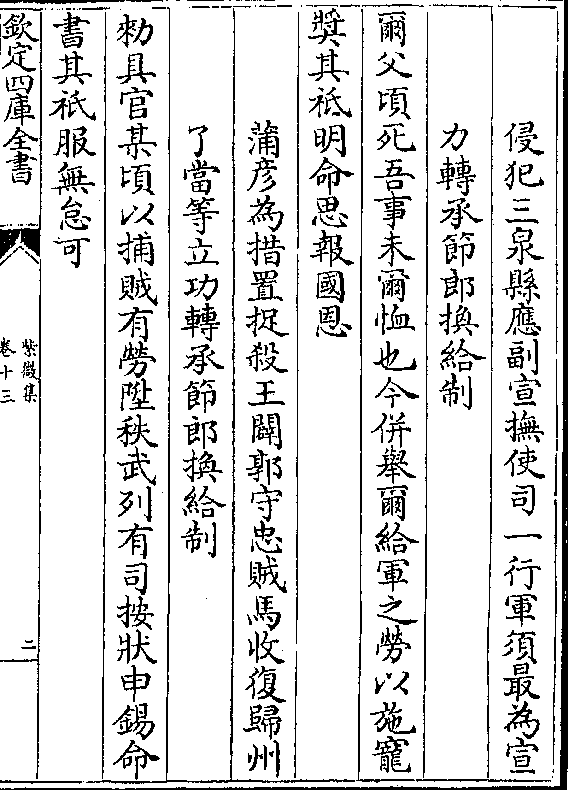 侵犯三泉縣應副宣撫使司一行軍須最為宣
力轉承節郎換給制
爾父頃死吾事未爾恤也今併舉爾給軍之勞以施寵
奬其祗明命思報國恩
蒲彦為措置捉殺王闢郭守忠賊馬收復歸州
了當等立功轉承節郎換給制
勑具官某頃以捕賊有勞陞秩武列有司按狀申錫命
書其祗服無怠可
欽定四庫全書
紫微集
卷十三
二